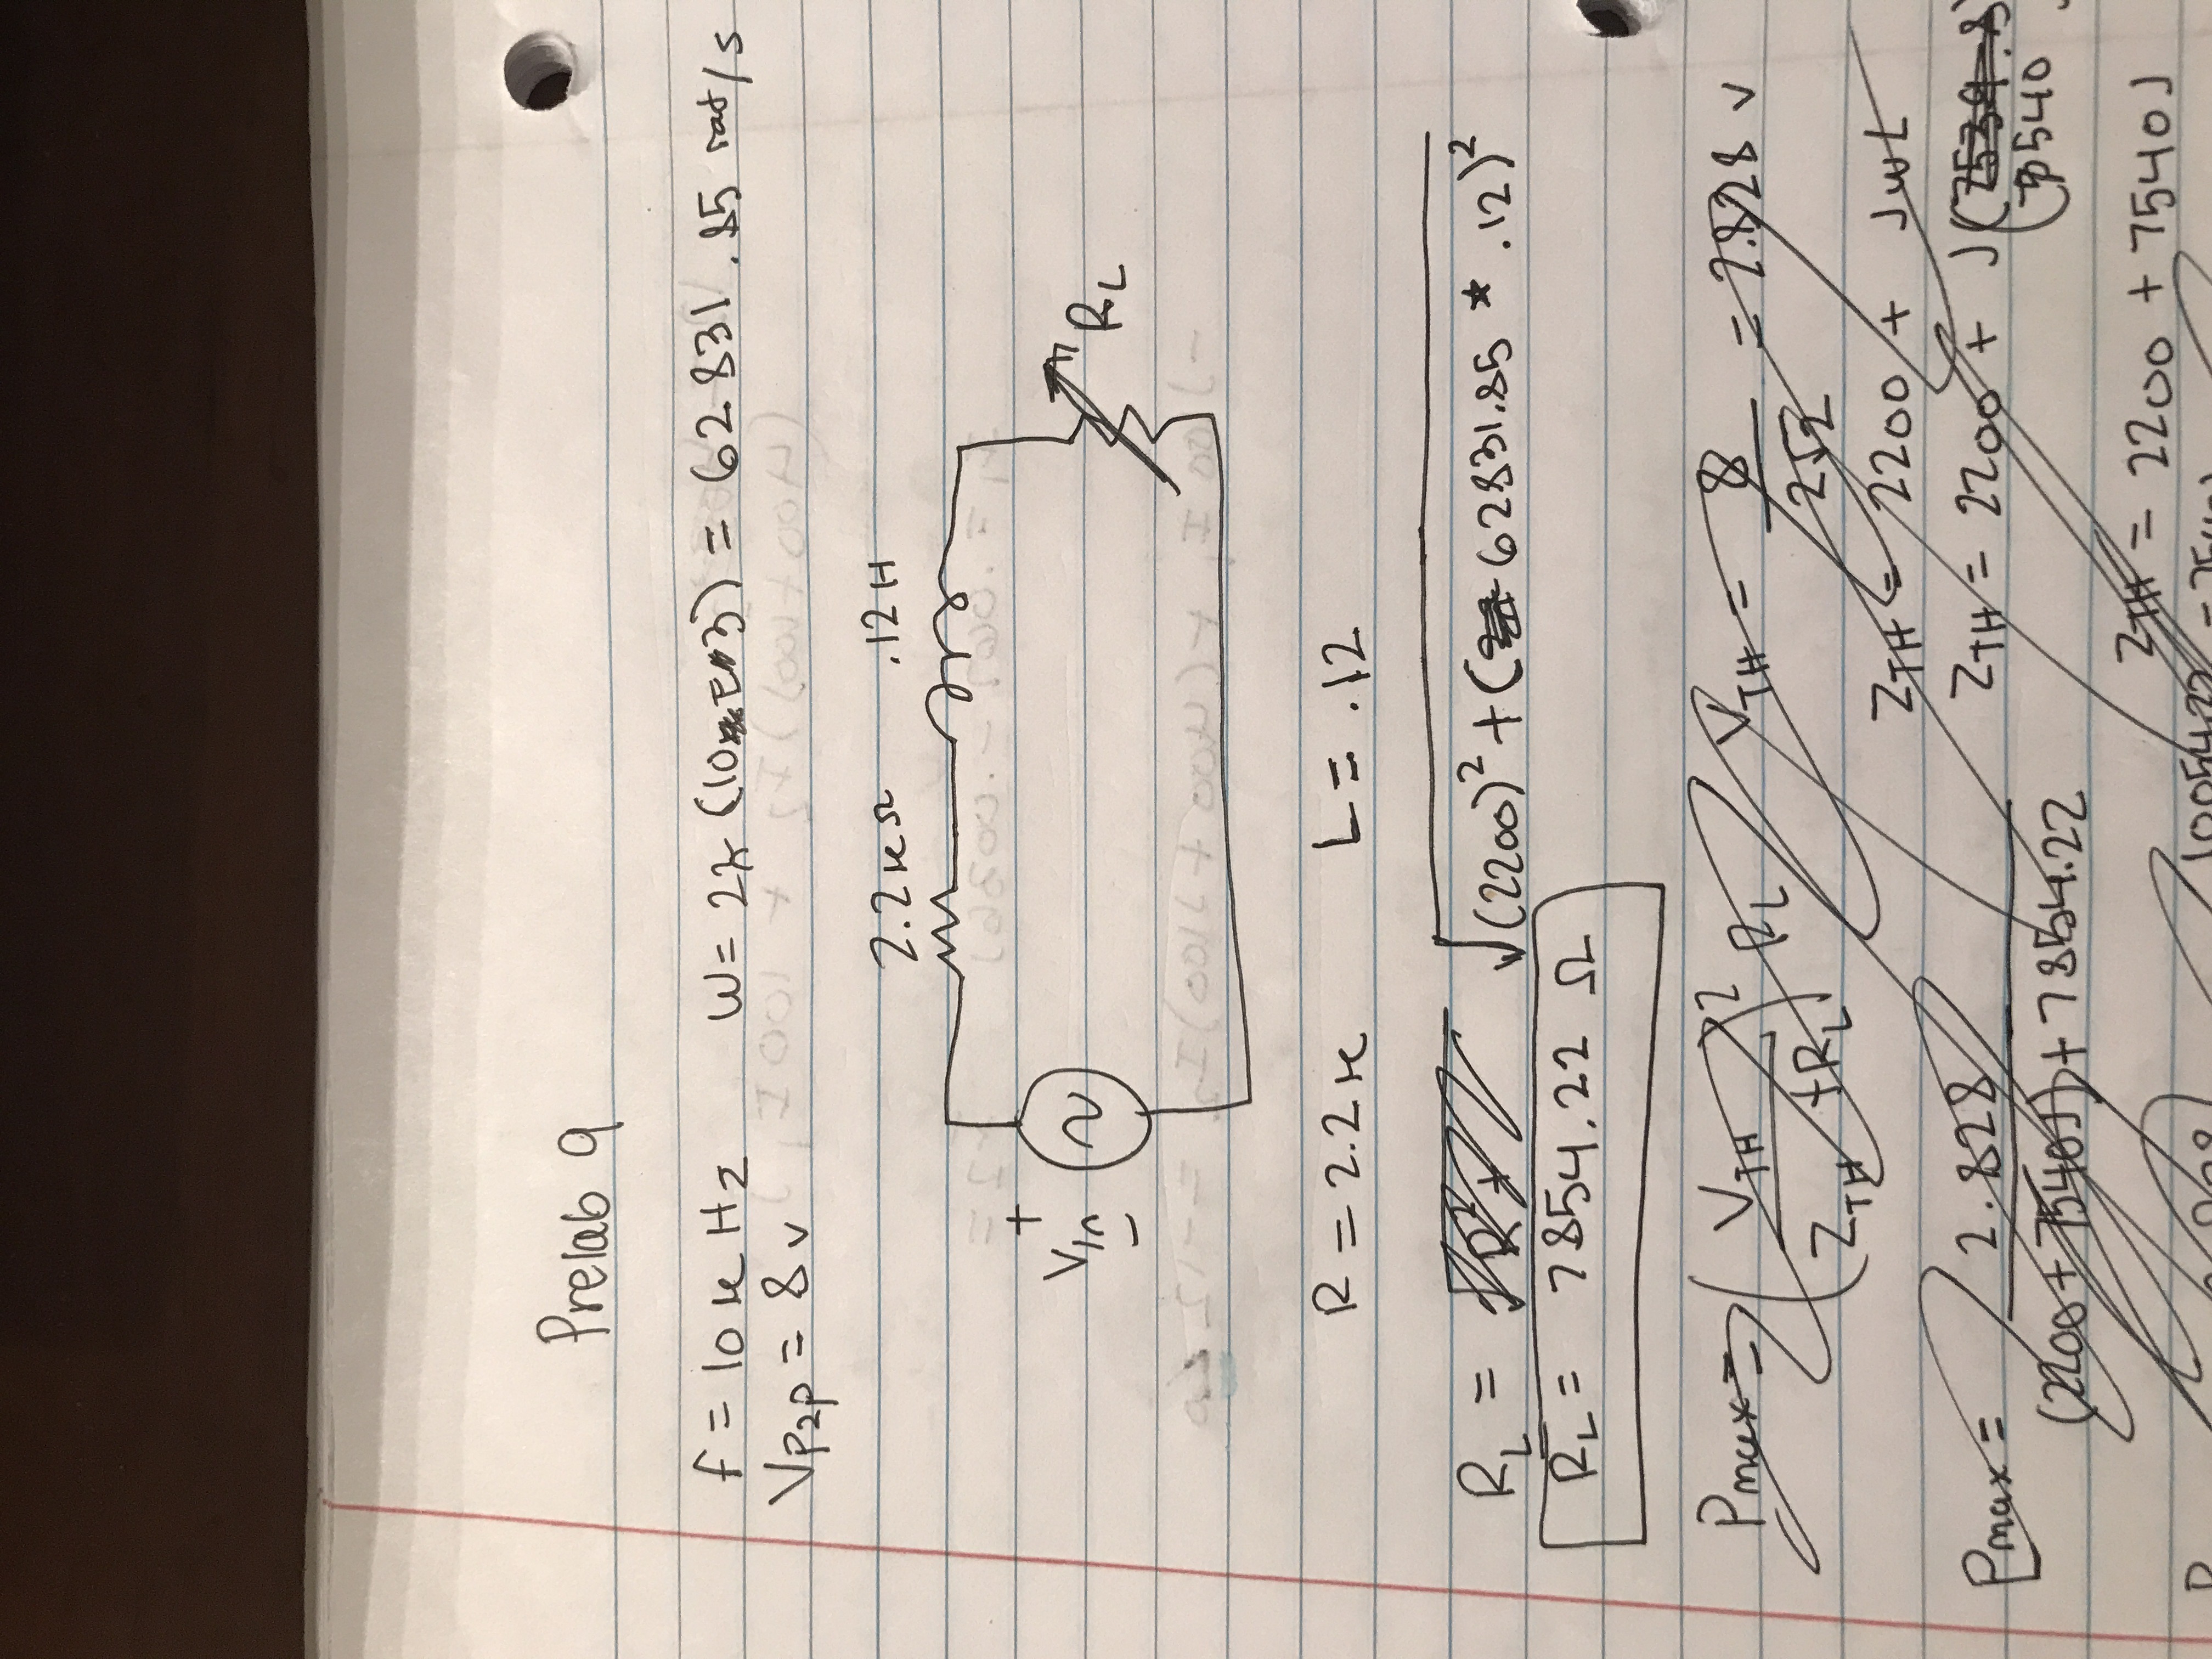 Prelab 9
f = 10 k Hz W = 2π (10E3) = 62 831 .85 rad/s
Vp2p = 8 v
2.2kΩ .12 H
+
Vin
−
RL
R = 2.2 k L = .12
RL = √(2200)² + (62831.85 * .12)²
RL = 7854.22 Ω
Pmax = (VTH / ZTH + RL)² RL VTH = 8 / 2√2 = 2.828 v
ZTH = 2200 + JWL
Pmax = 2.828 / (2200 + 7540J) + 7854.22 ZTH = 2200 + J(7540)
ZTH = 2200 + 7540J